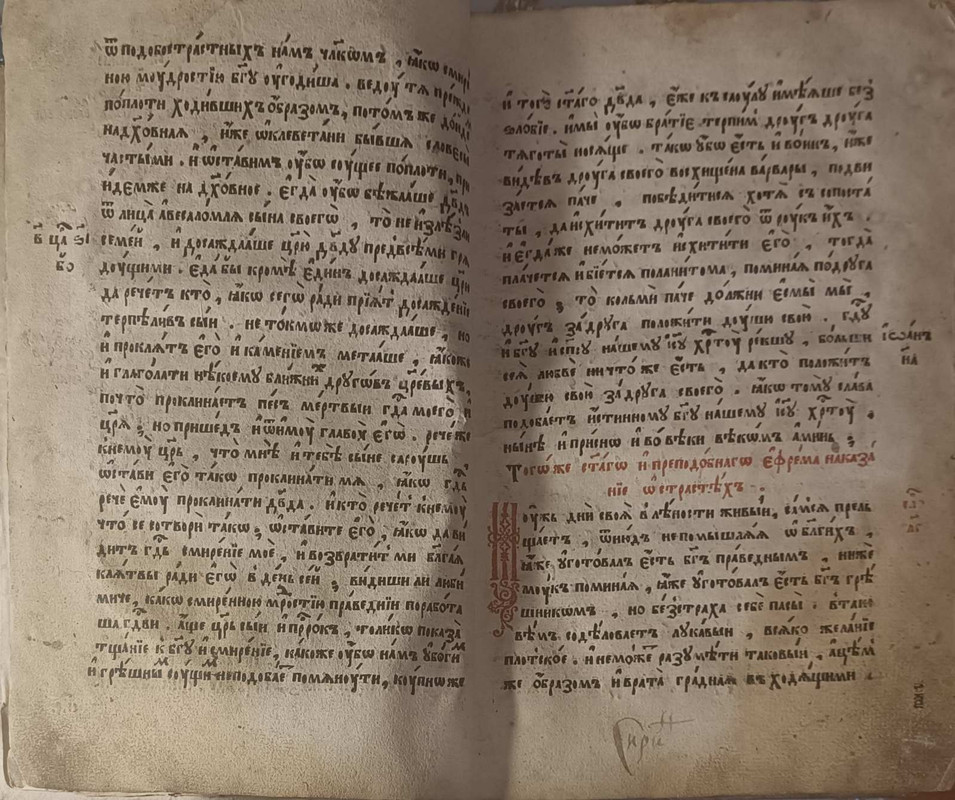 ѿ подобострастныхъ на́мъ чл҃кѡмъ , ꙗ҆́кѡ смире
ною моу́дростїю бг҃у ᲂу҆годи́ша . ведоу́ тѧ пре́жде
по́плоти ходи́вшихъ ѻ҆́бразомъ , пото́мъ же дои́де
надх҃о́внаѧ , и҆́же ѡ҆клевета́ни бы́вшѧ словесы̀
ча́стыми . и҆ ѡ҆ста́вимъ ᲂу҆́бѡ сꙋ́щее по́плоти , прї
и́демже на дх҃о́вное . є҆гда̀ ᲂу҆́бѡ бѣжа́аше дв҃дъ
ѿ лица̀ авесало́млѧ сы́на своегѡ̀ , то̀ не и҆злѣ́злъ
семе́й , и҆ досажда́аше цр҃ю̀ дв҃ду предвсѣ́ми грѧ
в҃ цр҃ѕ ѕ҃і
бо
доу́щими . є҆да̀ бы кромѣ̀ є҆ди́нъ досажда́аше цр҃ю
да рече́тъ кто̀ , ꙗ҆́кѡ сегѡ̀ ра́ди прїѧ́тъ досажде́нїе
терпѣли́въ сы́й . не то́кмѡже досажда́аше , но
и҆ проклѧ́тъ є҆го̀ и҆ ка́менїемъ мета́аше , ꙗ҆́коже
и҆ глаго́лати нѣ́коему бли́жнихъ дрꙋгѡ́въ цр҃е́выхъ ,
почто̀ проклина́етъ пе́съ ме́ртвыи гд҃а моего̀
цр҃ѧ̀ ; но прише́дъ и҆ ѿимоу̀ главоу̀ є҆гѡ̀ . рече́ же
кнемоу̀ цр҃ь , что̀ мнѣ̀ и҆ тебѣ̀ сы́не сароу́шь ,
ѡ҆ста́ви є҆го̀ та́кѡ проклина́ти мѧ , ꙗ҆́кѡ гд҃ь
речѐ є҆моу̀ проклина́ти дв҃да . и҆ кто̀ рече́тъ кнемоу̀
что̀ се сотворѝ та́кѡ ; ѡ҆ста́вите є҆го̀ , ꙗ҆́кѡ да ви
дитъ гд҃ь смире́нїе моѐ , и҆ возврати́тъ ми благаѧ
клѧ́твы ра́ди є҆гѡ̀ в де́нь се́й ; ви́диши ли люби
миче , ка́кѡ смире́нною мꙋ́дростїю пра́веднїи порабо́та
ша гд҃ви . а҆́ще цр҃ь сы́й и҆ пр҃ро́къ , толи́кѡ показа̀
тща́нїе к бг҃у и҆ смире́нїе , ка́коже ᲂу҆́бѡ на́мъ ᲂу҆бо́гимъ
и҆ грѣ́шнымъ соу́щимъ неподоба́етъ помѧноу́ти , коу́пнѡже
и҆ того̀ ст҃а́го дв҃да , є҆́же къ саоу́лу и҆мѣ́ѧше без
ѕло́бїе . и҆ мы̀ ᲂу҆́бѡ бра́тїе те́рпим дроу́гъ дроу́га
тѧготы̀ носѧ́ще . та́кѡ ᲂу҆́бѡ є҆́сть и҆ во́инъ , и҆́же
ви́дѣвъ дроу́га своего̀ восхище́на ва́рвары , подви
за́етсѧ па́че , побѣди́тисѧ хотѧ̀ съ сопоста́
ты , да и҆схити́тъ дроу́га своего̀ ѿ роу́къ и҆́хъ .
и҆ є҆гда́же не мо́жетъ и҆схити́ти є҆го̀ , тогда̀
пла́четсѧ и҆ бїе́тсѧ полани́тома , помина́ѧ по дру́га
своего̀ ; то̀ кольмѝ па́че до́лжни є҆смы̀ мы̀ ,
дроу́гъ за дру́га положи́ти доу́ши своѧ̀ . гд҃у
и҆ бг҃у и҆ сп҃су нашему і҆с҃у хр҃тоу̀ ре́кшу , бо́льши
і҆ѡ҆а́нъ
на
сеѧ̀ любвѐ ничто́ же є҆́сть , да кто̀ положи́тъ
доу́шю свою̀ за дру́га своего̀ . ꙗ҆́кѡ тому̀ сла́ва
подоба́етъ и҆́стинному бг҃у нашему і҆с҃у хр҃тоу̀ ,
ны́нѣ и҆ при́снѡ и҆ во вѣ́ки вѣкѡ́мъ а҆ми́нь ;
Тогѡ́же ст҃а́гѡ и҆ преподо́бнагѡ є҆фре́ма наказа́
нїе ѡ҆ страсте́хъ .
Иоу́жь дни̑ своѧ̀ в лѣ́ности живы́и , са́мсѧ прель
ща́етъ , ѿню́дъ не помышлѧ́ѧ ѡ҆ благи́хъ ,
ꙗ҆̀же ᲂу҆гото́валъ є҆́сть бг҃ъ пра́веднымъ , нижѐ
моу́къ помина́ѧ , ꙗ҆̀же ᲂу҆гото́валъ є҆́сть бг҃ъ грѣ́
шникѡмъ , но безстра́ха себѐ пасы̀ . в та́ко
ве́мъ содѣ́ловаетъ лука́выи , всѧ́ко жела́нїе
пло́тское . и҆ немо́жетъ разумѣ́ти таковы́и , а҆́цѣм
же ѻ҆́бразомъ и҆ врата̀ гра́днаѧ в ходѧ́щими .